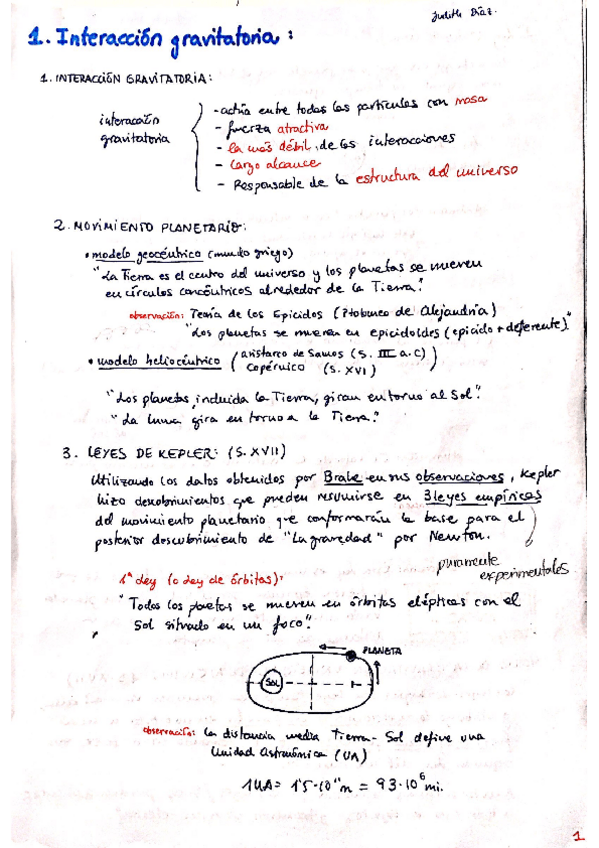 Judith Díaz.
1. Interacción gravitatoria:
1. INTERACCIÓN GRAVITATORIA:
interacción gravitatoria
- actúa entre todas las partículas con masa
- fuerza atractiva
- la más débil de las interacciones
- Largo alcance
- Responsable de la estructura del universo
2. MOVIMIENTO PLANETARIO:
• modelo geocéntrico (mundo griego)
"La Tierra es el centro del universo y los planetas se mueven
en círculos concéntricos alrededor de la Tierra."
observación: Teoría de los Epiciclos (Ptolomeo de Alejandría)
"Los planetas se mueven en epicicloides (epiciclo + deferente)."
• modelo heliocéntrico (aristarco de Samos (S. III a.C)
Copérnico (S. XVI)
"Los planetas, incluida la Tierra, giran entorno al Sol".
"La luna gira en torno a la Tierra."
3. LEYES DE KEPLER: (S. XVII)
Utilizando los datos obtenidos por Brahe en sus observaciones, Kepler
hizo descubrimientos que pueden resumirse en 3 leyes empíricas
del movimiento planetario que conformarán la base para el
posterior descubrimiento de "La gravedad" por Newton.
puramente
experimentales
1ª Ley (o Ley de órbitas):
"Todos los planetas se mueven en órbitas elípticas con el
Sol situado en un foco".
PLANETA
SOL
observación: La distancia media Tierra-Sol define una
Unidad Astronómica (UA)
1UA = 1'5·10¹¹m = 93·10⁶ mi.
1